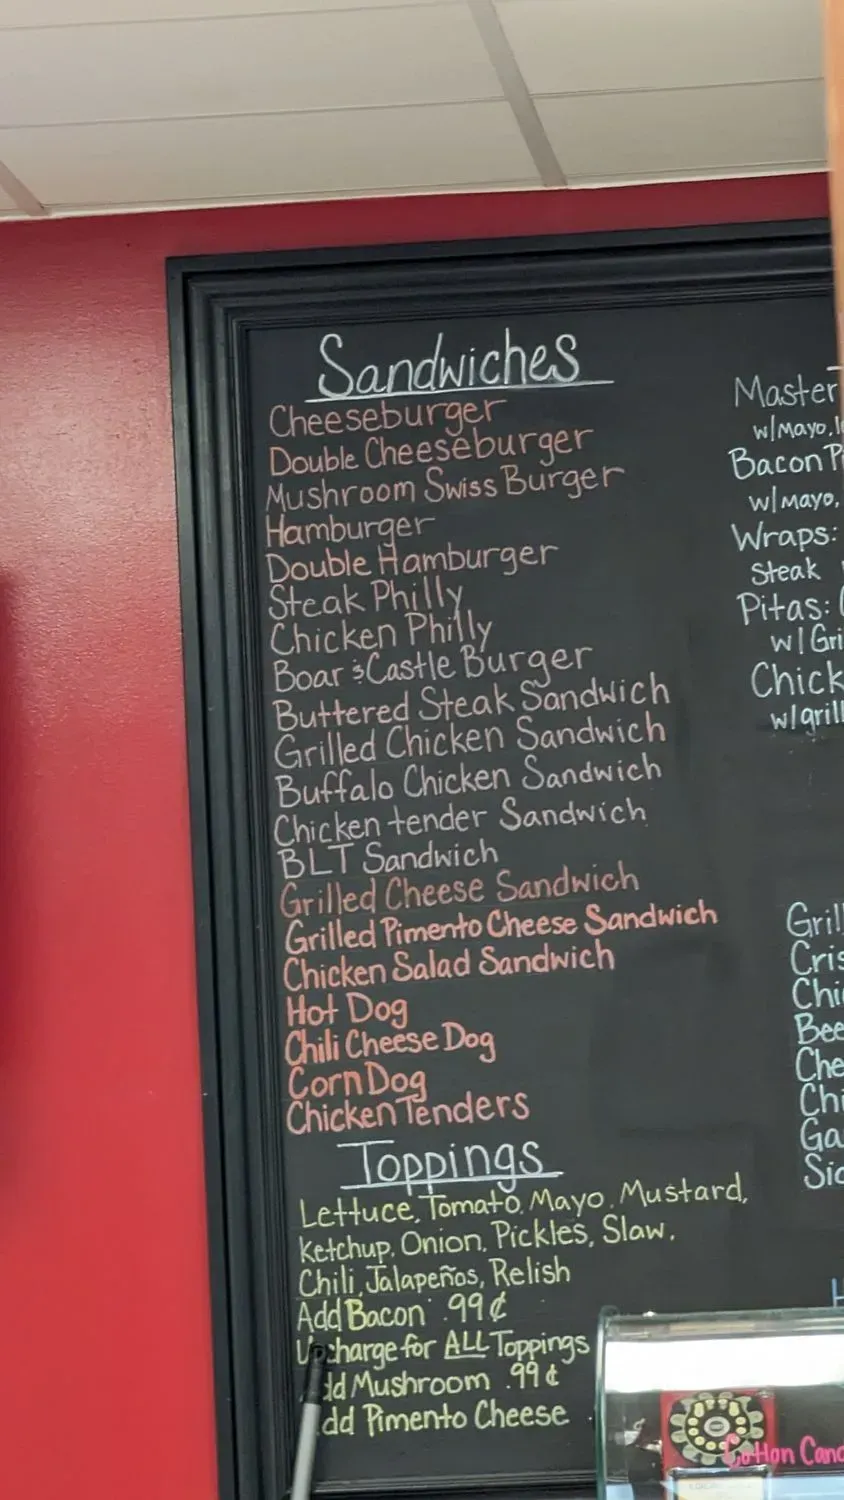 Sandwiches
Cheeseburger
Double Cheeseburger
Mushroom Swiss Burger
Hamburger
Double Hamburger
Steak Philly
Chicken Philly
Boar & Castle Burger
Buttered Steak Sandwich
Grilled Chicken Sandwich
Buffalo Chicken Sandwich
Chicken tender Sandwich
BLT Sandwich
Grilled Cheese Sandwich
Grilled Pimento Cheese Sandwich
Chicken Salad Sandwich
Hot Dog
Chili Cheese Dog
Corn Dog
Chicken Tenders
Toppings
Lettuce, Tomato, Mayo, Mustard,
Ketchup, Onion, Pickles, Slaw,
Chili, Jalapeños, Relish
Add Bacon .99¢
Upcharge for ALL Toppings
dd Mushroom .99¢
dd Pimento Cheese
Master
w/Mayo,
Bacon P
w/mayo,
Wraps:
Steak
Pitas:
w/Gri
Chick
w/grill
Gril
Cris
Chi
Bee
Che
Chi
Ga
Sid
Cotton Cand